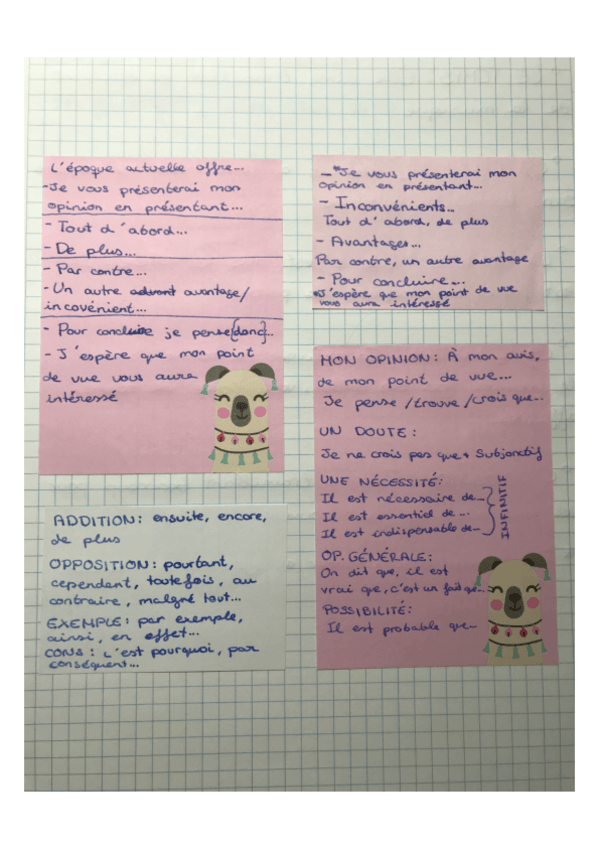 L'époque actuelle offre...
- Je vous présenterai mon
opinion en présentant...
- Tout d'abord...
- De plus...
- Par contre...
- Un autre advant avantage/
incovénient...
- Pour conclure je pense[donc]...
- J'espère que mon point
de vue vous aura
intéressé
- *Je vous présenterai mon
opinion en présentant...
- Inconvénients...
Tout d'abord, de plus
- Avantages...
Par contre, un autre avantage
- Pour concluire...
*J'espère que mon point de vue
vous aura intéressé
MON OPINION: À mon avis,
de mon point de vue...
Je pense /trouve /crois que...
UN DOUTE:
Je ne crois pas que + Subjonctif
UNE NÉCESSITÉ:
Il est nécessaire de...
Il est essentiel de...
Il est indispensable de...
INFINITIF
OP. GÉNÉRALE:
On dit que, il est
vrai que, c'est un fait que...
POSSIBILITÉ:
Il est probable que...
ADDITION: ensuite, encore,
de plus
OPPOSITION: pourtant,
cependent, toutefois, au
contraire, malgré tout...
EXEMPLE: par exemple,
ainsi, en effet...
CONS: c'est pourquoi, par
conséquent...